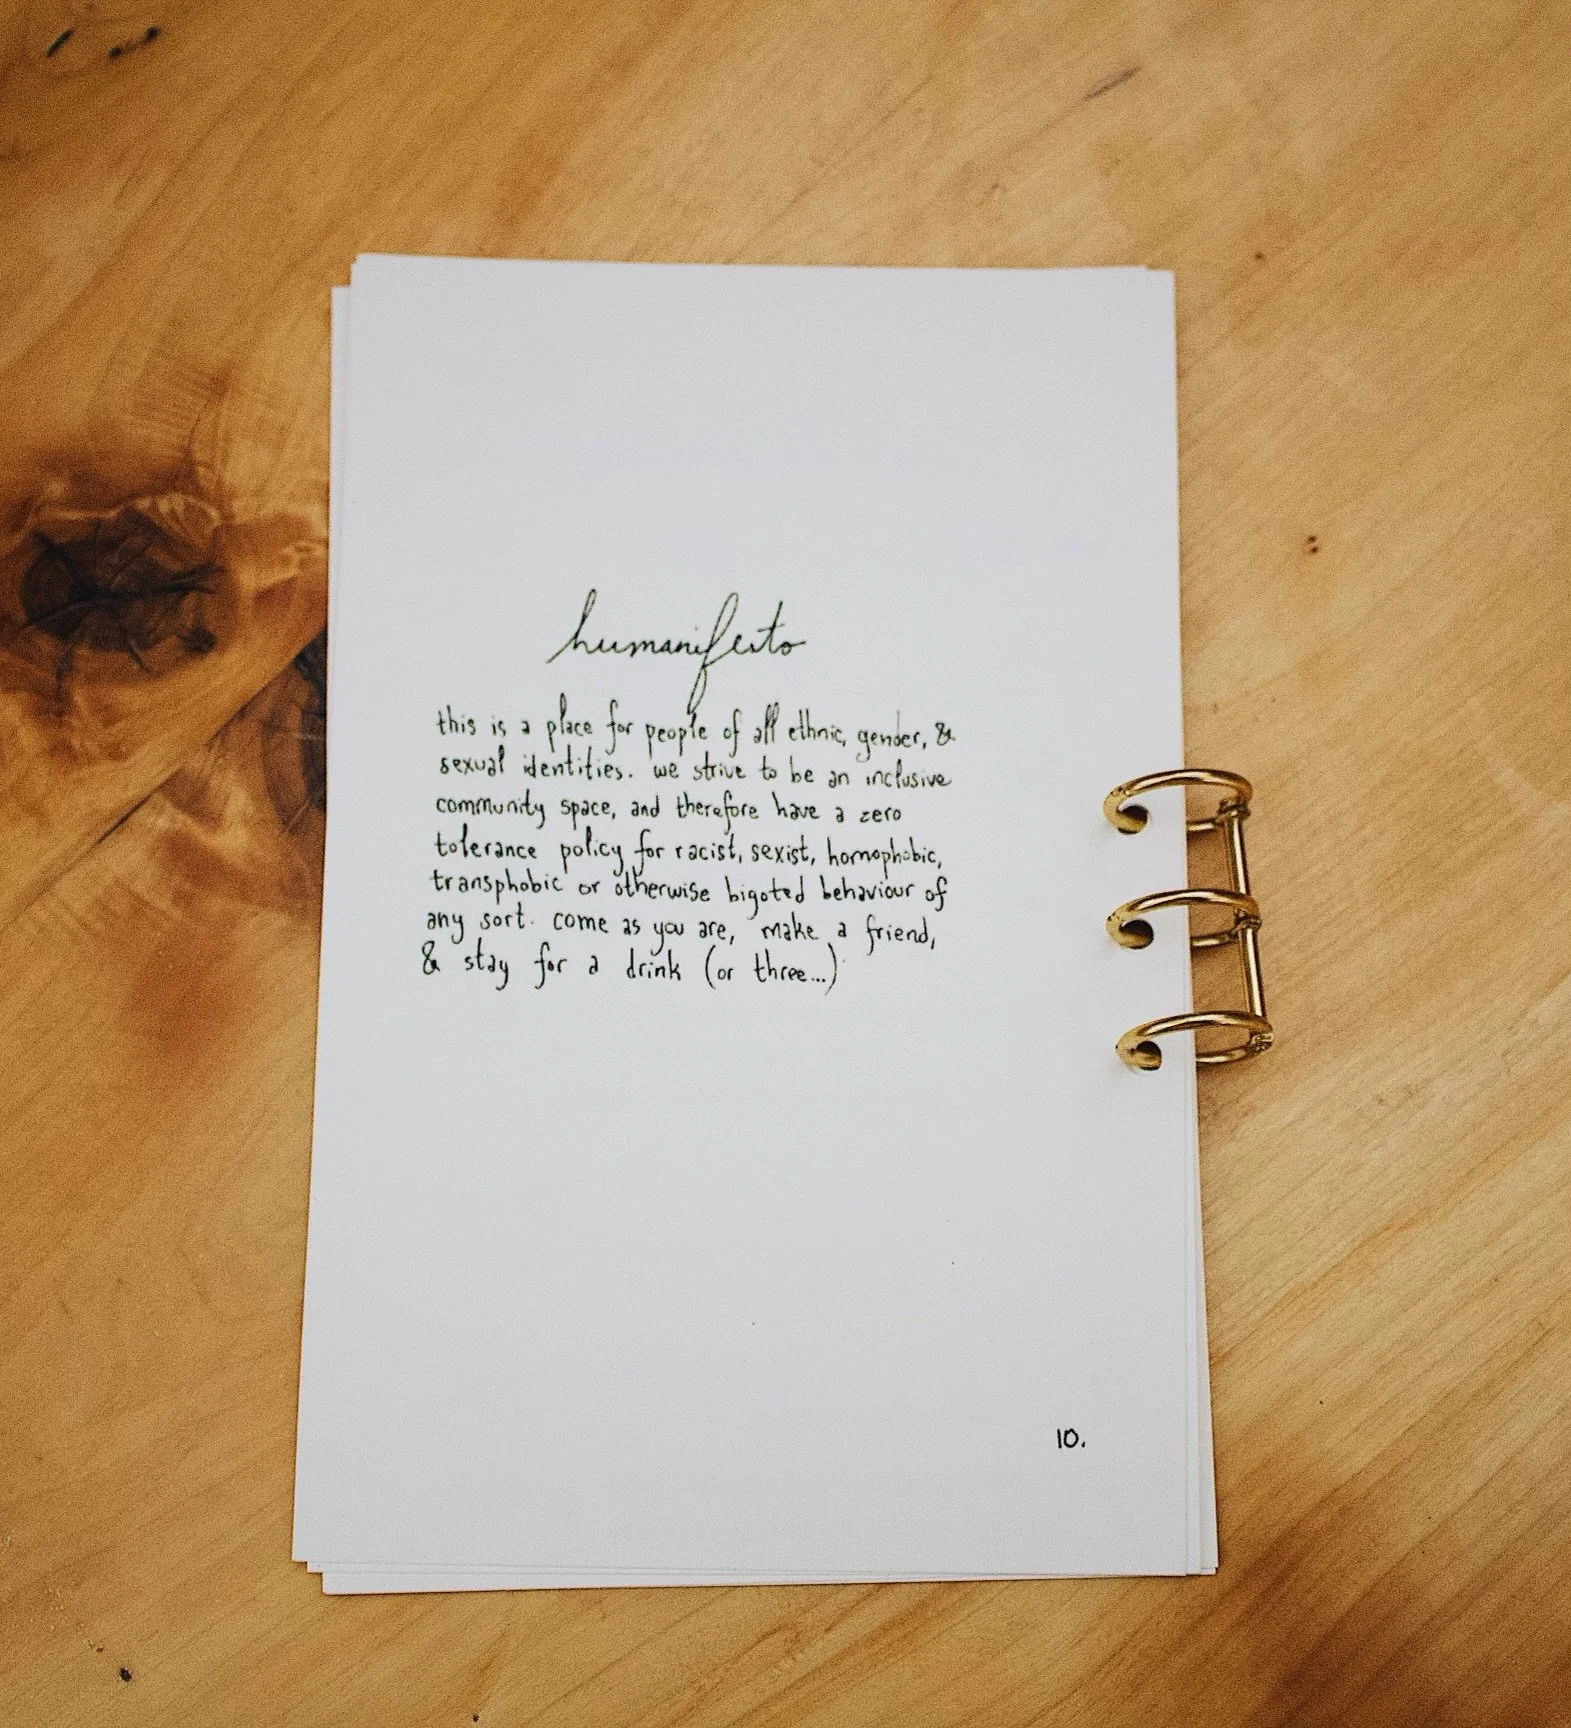 humanifesto
this is a place for people of all ethnic, gender, &
sexual identities. we strive to be an inclusive
community space, and therefore have a zero
tolerance policy for racist, sexist, homophobic,
transphobic or otherwise bigoted behaviour of
any sort. come as you are, make a friend,
& stay for a drink (or three...)
10.